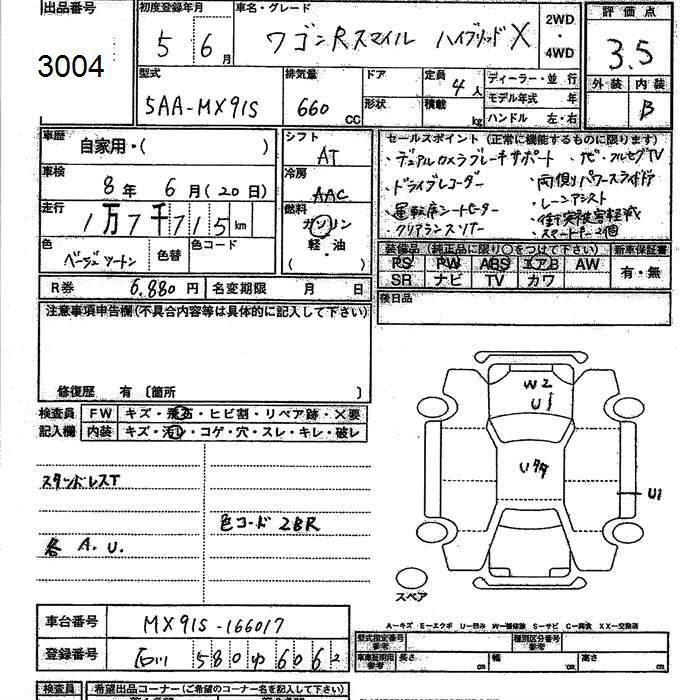 出品番号
3004
初度登録年月
5 6月
車名・グレード
ワゴンRスマイル ハイブリッド X
2WD
・
4WD
評価点
3.5
外装 内装
B
型式
5AA-MX91S
排気量
660 CC
ドア
形状
定員 4人
積載 kg
ディーラー・並行
モデル年式 年
ハンドル 左・右
車歴
自家用・( )
車検
8年 6月(20日)
走行
1万7千715km
色
ベージュツートン
色替
色コード
シフト
AT
冷房
AAC
燃料
ガソリン
軽・油
( )
セールスポイント (正常に機能するものに限ります)
・デュアルカメラブレーキサポート ・ナビ・フルセグTV
・ドライブレコーダー ・両側パワースライドドア
・運転席シートヒーター ・レーンアシスト
・クリアランスソナー ・衝突被害軽減
・スマートキー2個
装備品 (純正品に限り○をつけて下さい) 新車保証書
PS PW ABS エアB AW
SR ナビ TV カワ
有・無
R券 6,880円 名変期限 月 日
後日品
注意事項申告欄(不具合内容等は具体的に記入して下さい)
修復歴 有 〔箇所 〕
検査員 FW キズ・飛石・ヒビ割・リペア跡・X要
記入欄 内装 キズ・汚レ・コゲ・穴・スレ・キレ・破レ
W2
U1
U1
スタンドレスT
色コード 2BR
各 A.U.
スペア
A－キズ E－エクボ U－凹み W－補修跡 S－サビ C－腐食 XX－交換済
車台番号 MX91S-166017
登録番号 石川 580 ゆ 6062
型式指定番号 参考
種別区分番号 参考
車庫証明用 参考 長さ cm 幅 cm 高さ cm
検査員 希望出品コーナー(ご希望のコーナー名を記入して下さい)